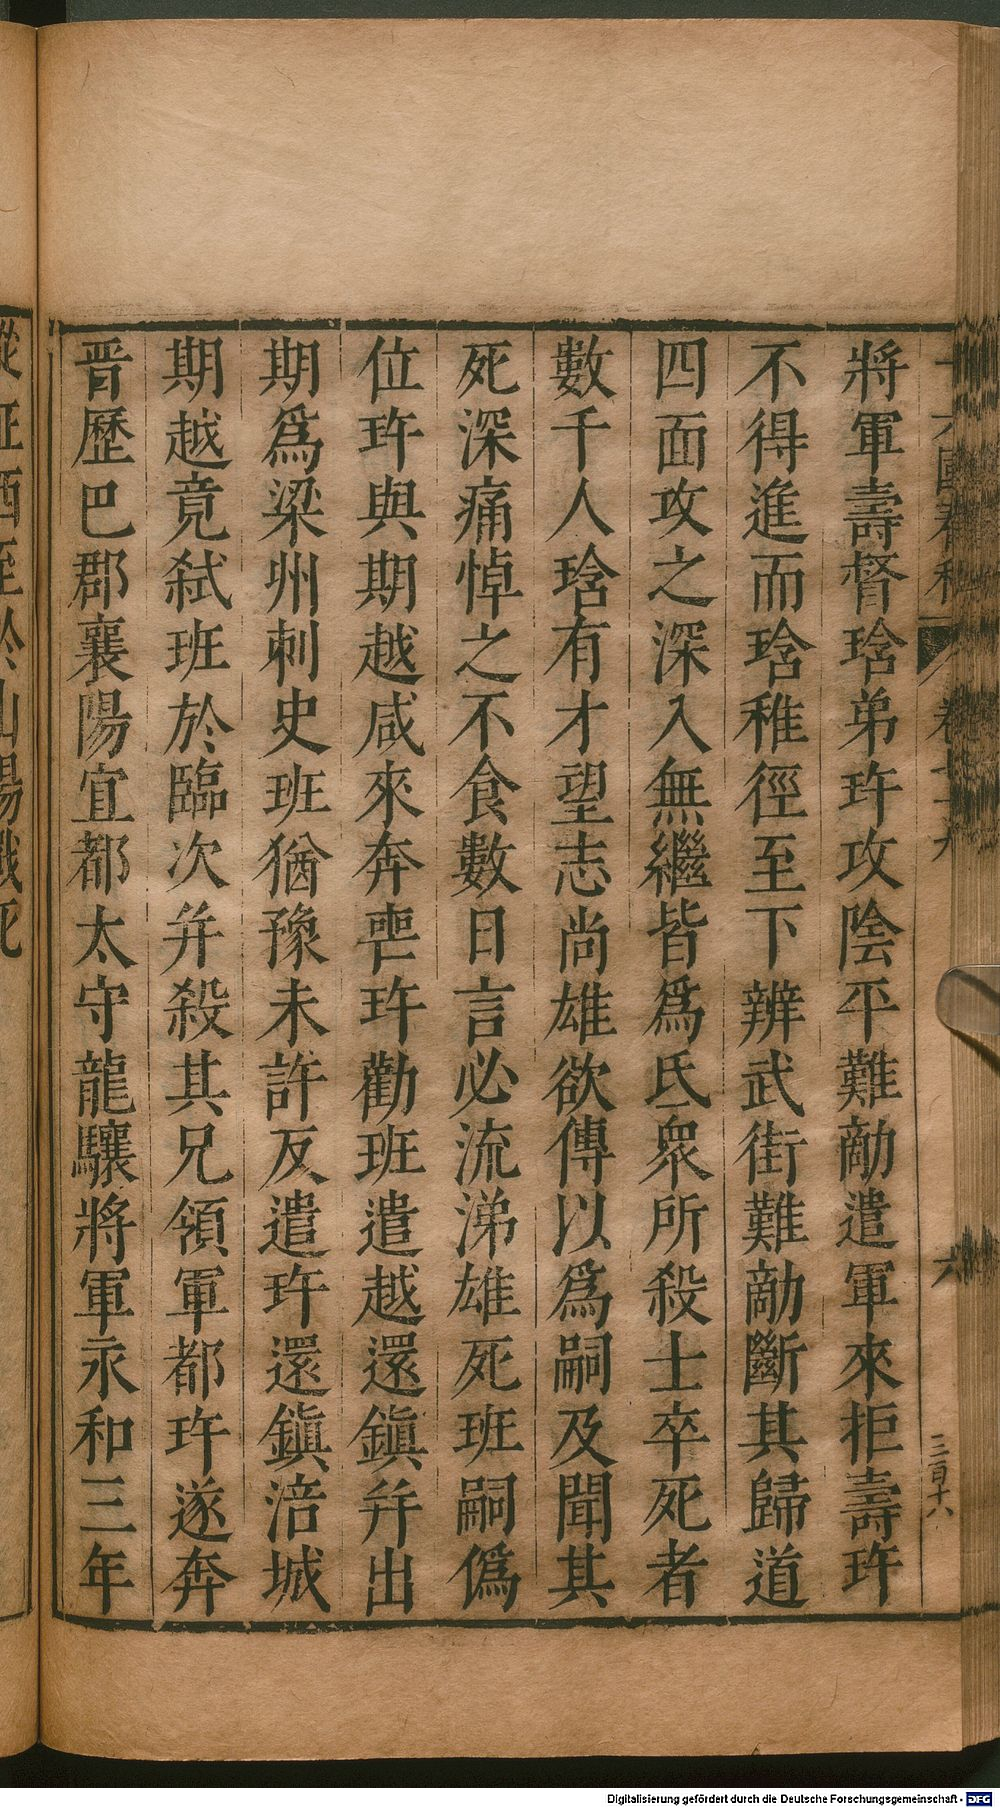 將軍壽督琀弟玝攻陰平難敵遣軍來拒壽玝
不得進而琀稚徑至下辨武街難敵斷其歸道
四面攻之深入無繼皆爲氐衆所殺士卒死者
數千人琀有才望志尚雄欲傳以爲嗣及聞其
死深痛悼之不食數日言必流涕雄死班嗣僞
位玝與期越咸來奔喪玝勸班遣越還鎮并出
期爲梁州刺史班猶豫未許反遣玝還鎮涪城
期越竟弑班於臨次并殺其兄領軍都玝遂奔
晋歷巴郡襄陽宜都太守龍驤將軍永和三年
從征西至於山陽戰死
六
三百十六
Digitalisierung gefördert durch die Deutsche Forschungsgemeinschaft - DFG